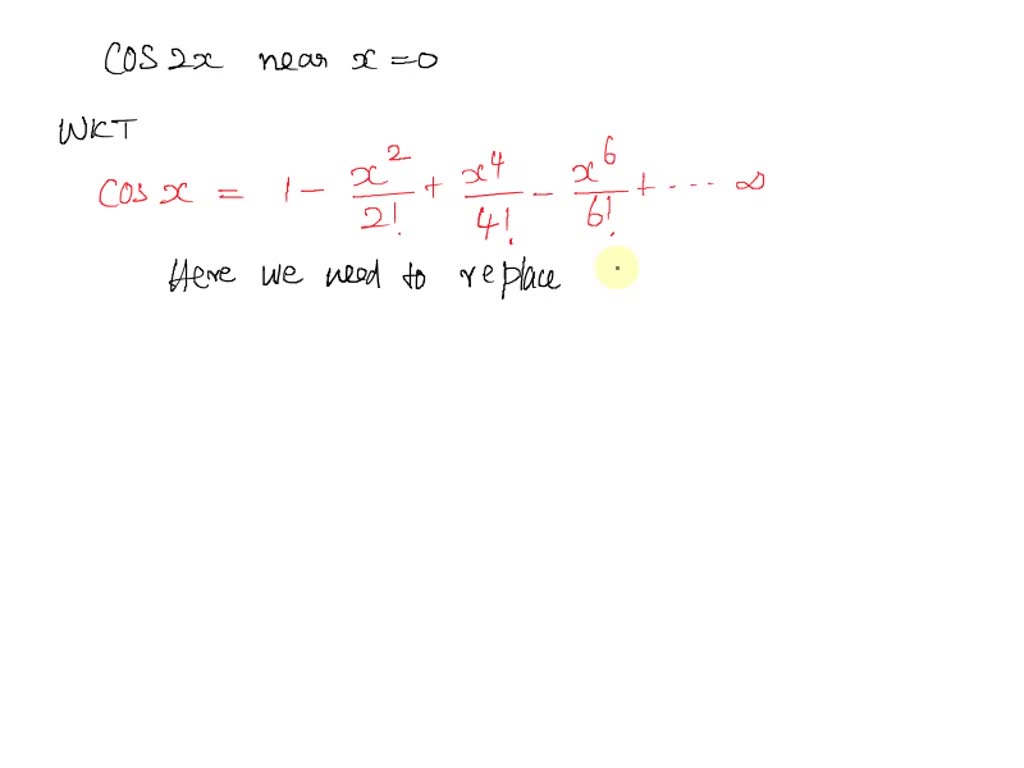 COS 2x near x = 0
WKT
Cos x = 1 - x^2/2! + x^4/4! - x^6/6! + ... ∞
Here we need to replace